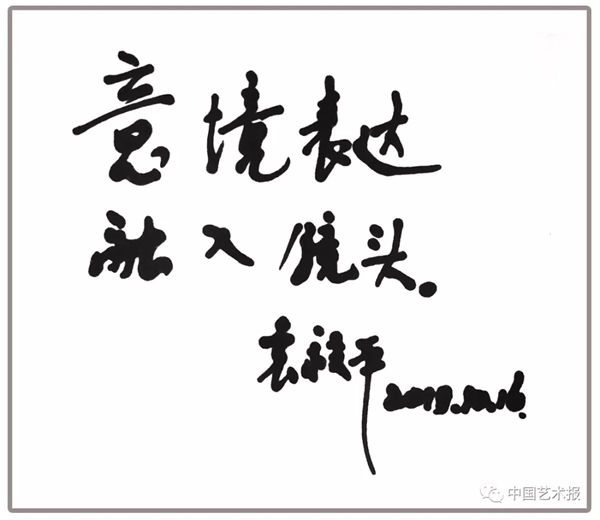 意境表达
融入镜头。
袁毅平 2019.10.16.
中国艺术报